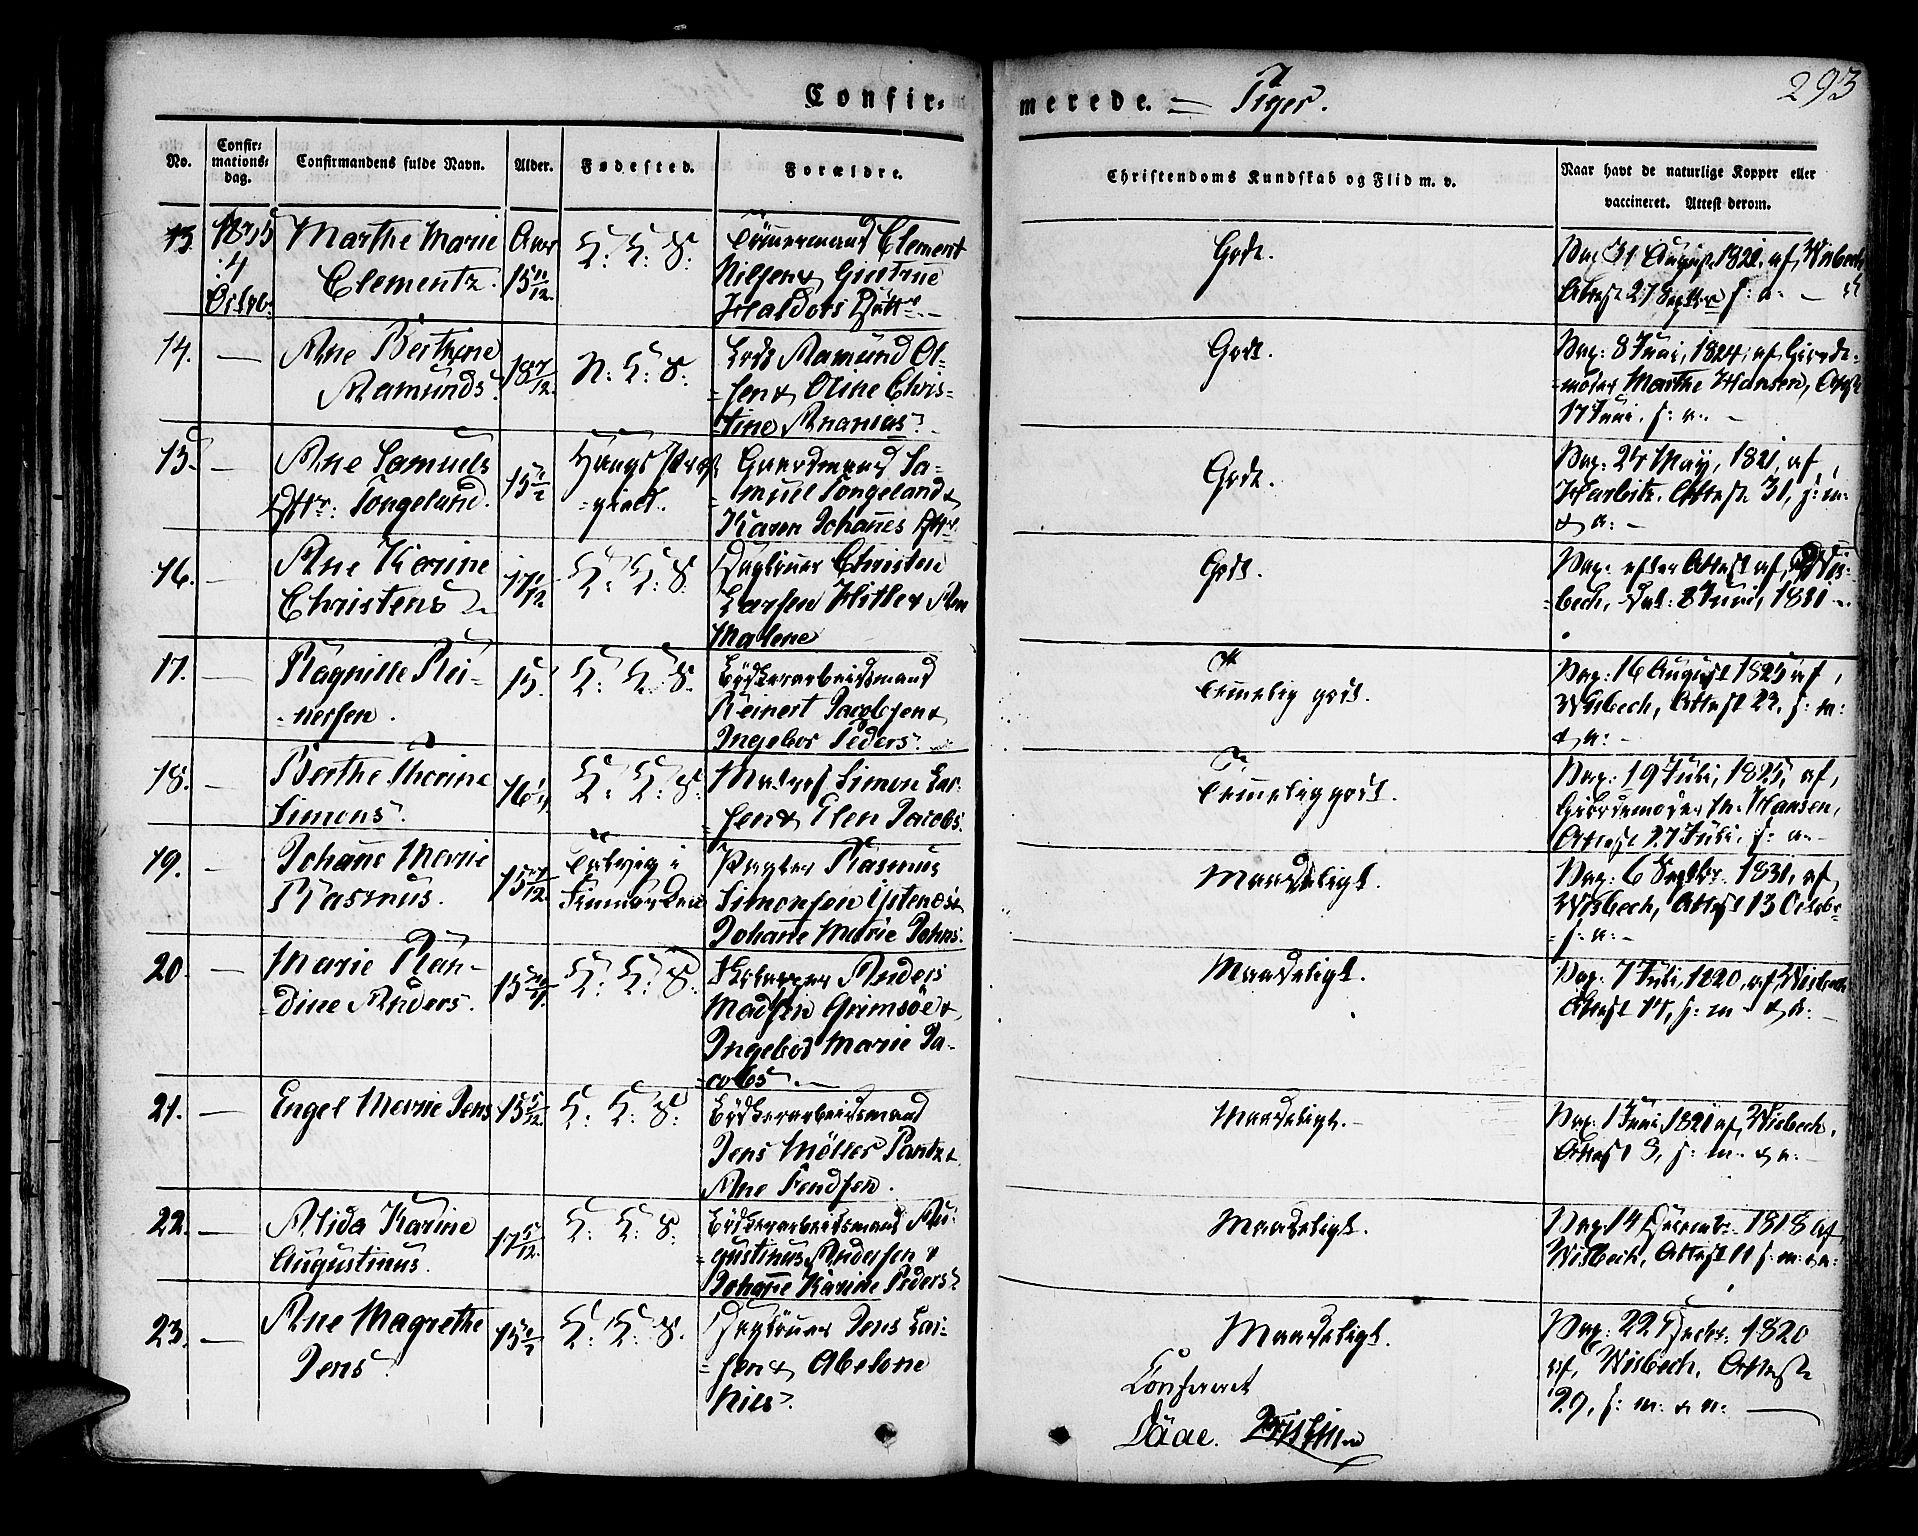 Confir-
merede. — Piger.
293
No.
Confir-
mations-
dag.
Confirmandens fulde Navn.
Alder.
Fødested.
Forældre.
Christendoms Kundskab og Flid m. v.
Naar havt de naturlige Kopper eller
vaccineret. Attest derom.
13
1835
4
Octob:
Marthe Marie
Clementz.
Aar
15 11/12.
K: K: S:
Tömmermand Clement
Nilsen & Giertrue
Haldors Dattr.
Godt.
Vac: 31 August 1821, af Wisbech,
Attest 27 Septbr s: a: —
14.
—
Ane Berthine
Aamunds.
18 7/12.
N: K: S:
Lods Aamund Ol-
sen & Oline Chris-
tine Ananias.
Godt.
Vac: 8 Juni, 1824, af Giorde-
moder Marthe Hansen, Attest
17 Juni, s: a: —
15.
—
Ane Samuels
Dttr: Tongeland.
15 1/2
Houg's Præste-
gield.
Gaardmand Sa-
muel Tongeland &
Karen Johannes Dttr
Godt.
Vac: 24 May, 1821, af
Harbitz. Attest 31, s: m:
& a: —
16.
—
Ane Karine
Christens
17 1/12
K: K: S
Christen
Larsen Hitle & Ane
Malene
Godt.
Vac: efter Attest af Wis-
bech, Dat: 8 Juni,
17.
—
Ragnille Rei-
nersen.
15.
K: K: S:
Bödkerarbeidsmand
Reinert Jacobsen &
Ingebor Peders.
Temmelig godt.
Vac: 16 August 1825 af
Wisbech, Attest 22, s: m:
& a: —
18.
—
Berthe Thorine
Simons.
16
K: K: S:
Matros Simon Lar-
sen & Elen Jacobs.
Temmelig godt.
Vac: 19 Juli, 1825, af
Giordemoder M. Hansen,
Attest 27 Juli, s: a: —
19.
—
Johane Marie
Rasmus.
15 /12.
Talvig i
Finmarken
Rasmus
Simonsen &
Johane Marie Johns.
Maadeligt.
Vac: 6 Septbr. 1831, af
Wisbech, Attest 13 Octobr
s: a: —
20.
—
Marie Ran-
dine Anders.
15
K: K: S:
Anders
Madsen Grimsöe &
Ingebor Marie Ja-
cobs.
Maadeligt.
Vac: 7 Juli, 1820, af Wisbech
Attest 14, s: m & a: —
21.
—
Engel Marie Jens
15 5/12.
K: K: S:
Bödkerarbeidsmand
Jens Möller Pantz &
Ane Sendsen.
Maadeligt. —
Vac: 1 Juni 1821 af Wisbech,
Attest 8, s: m & a: —
22.
—
Alida Karine
Augustinus.
17 5/12.
K: K: S:
Bödkerarbeidsmand Au-
gustinus Andersen &
Johane Karine Peders.
Maadeligt.
Vac: 14 Decembr. 1818 af
Wisbech, Attest s: m: & a:
23.
—
Ane Magrethe
Jens.
15 1/2
K: K: S:
Jens Lar-
sen & Abelone
Niels.
Maadeligt.
Vac: 22 Decbr. 1820
af Wisbech, Attest
29, s: m: & a: —
Confereret
Daae.